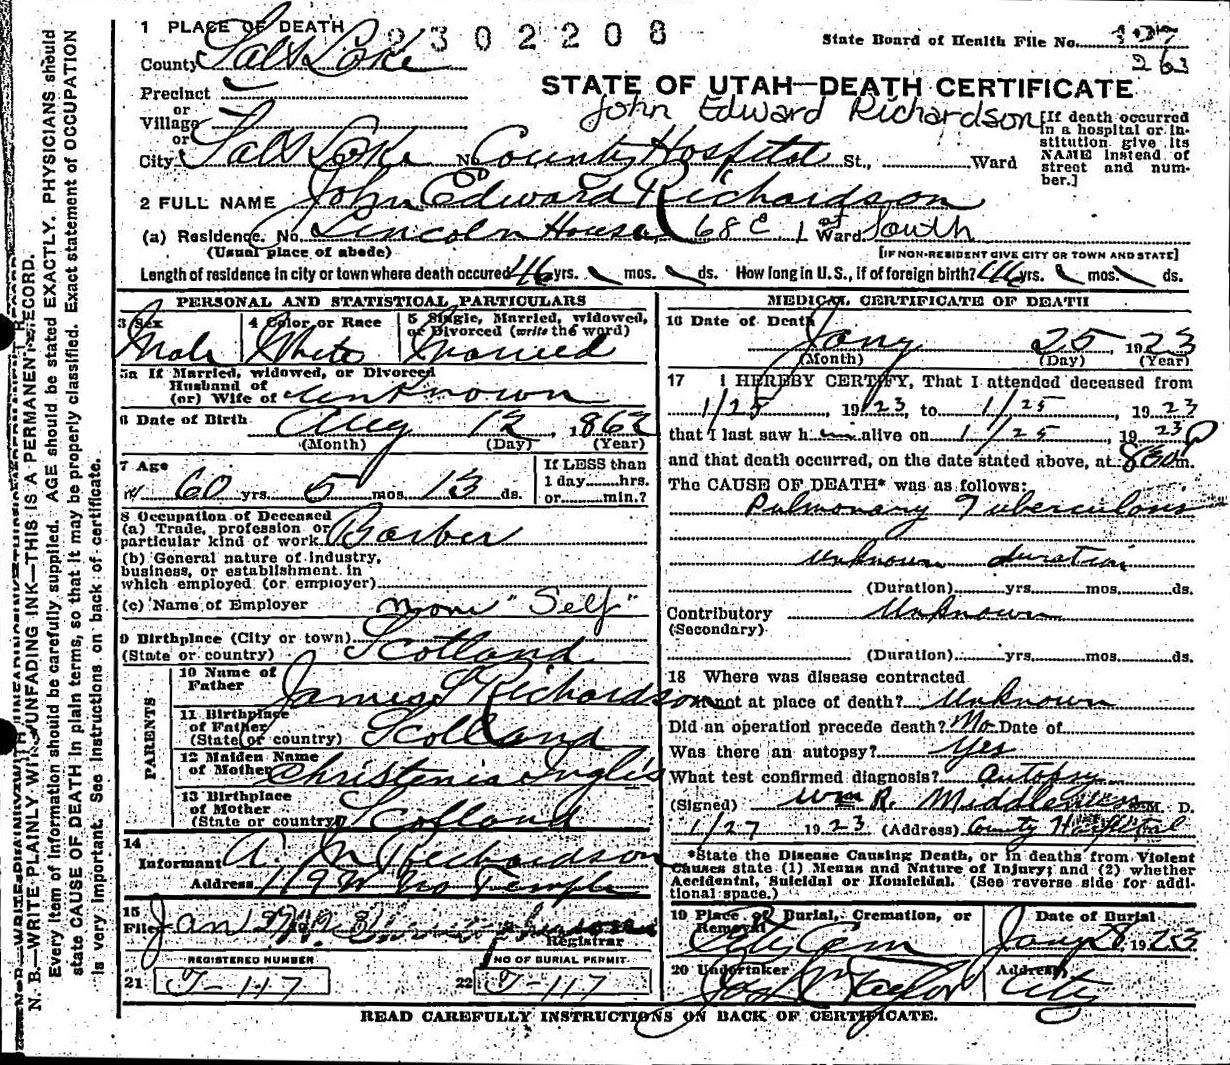 1 PLACE OF DEATH
2302208
State Board of Health File No.
263
County Salt Lake
STATE OF UTAH—DEATH CERTIFICATE
Precinct
or
Village
or
John Edward Richardson
[If death occurred in a hospital or institution give its NAME instead of street and number.]
City Salt Lake No. County Hospital St., Ward
2 FULL NAME John Edward Richardson
(a) Residence. No. Lincoln House 68 E 1st Ward South
(Usual place of abode) [IF NON-RESIDENT GIVE CITY OR TOWN AND STATE]
Length of residence in city or town where death occured 46 yrs. mos. ds. How long in U.S., if of foreign birth? yrs. mos. ds.
PERSONAL AND STATISTICAL PARTICULARS
3 Sex Male
4 Color or Race White
5 Single, Married, widowed, or Divorced (write the word) Married
5a If Married, widowed, or Divorced
Husband of
(or) Wife of unknown
6 Date of Birth Aug 12, 1862
(Month) (Day) (Year)
7 Age 60 yrs. 5 mos. 13 ds.
If LESS than
1 day hrs.
or min.?
8 Occupation of Deceased
(a) Trade, profession or
particular kind of work Barber
(b) General nature of industry,
business, or establishment in
which employed (or employer)
(c) Name of Employer none "Self"
9 Birthplace (City or town)
(State or country) Scotland
PARENTS
10 Name of
Father James S Richardson
11 Birthplace
of Father
(State or country) Scotland
12 Maiden Name
of Mother Christenia Inglis
13 Birthplace
of Mother
(State or country) Scotland
14
Informant A. M Richardson
Address 119 W No Temple
15
Filed Jan 27 19
Registrar
REGISTERED NUMBER
21 T-117
NO OF BURIAL PERMIT
22 T-117
MEDICAL CERTIFICATE OF DEATH
16 Date of Death Jany 25, 1923
(Month) (Day) (Year)
17 I HEREBY CERTIFY, That I attended deceased from
1/25, 1923, to 1/25, 1923
that I last saw him alive on 1/25, 1923
and that death occurred, on the date stated above, at 830 P m.
The CAUSE OF DEATH* was as follows:
Pulmonary Tuberculosis
unknown duration
(Duration) yrs. mos. ds.
Contributory Unknown
(Secondary)
(Duration) yrs. mos. ds.
18 Where was disease contracted
if not at place of death? Unknown
Did an operation precede death? No Date of
Was there an autopsy? Yes
What test confirmed diagnosis? Autopsy
(Signed) Wm R. M. D.
1/27 1923 (Address) County Hospital
*State the Disease Causing Death, or in deaths from Violent
Causes state (1) Menus and Nature of Injury; and (2) whether
Accidental, Suicidal or Homicidal. (See reverse side for addi-
tional space.)
19 Place of Burial, Cremation, or
Removal City Cem
Date of Burial
Jany 28 1923
20 Undertaker Jos Wm Taylor
Address City
READ CAREFULLY INSTRUCTIONS ON BACK OF CERTIFICATE.
N. B.—WRITE PLAINLY WITH UNFADING INK—THIS IS A PERMANENT RECORD.
Every item of information should be carefully supplied. AGE should be stated EXACTLY. PHYSICIANS should
state CAUSE OF DEATH in plain terms, so that it may be properly classified. Exact statement of OCCUPATION
is very important. See instructions on back of certificate.